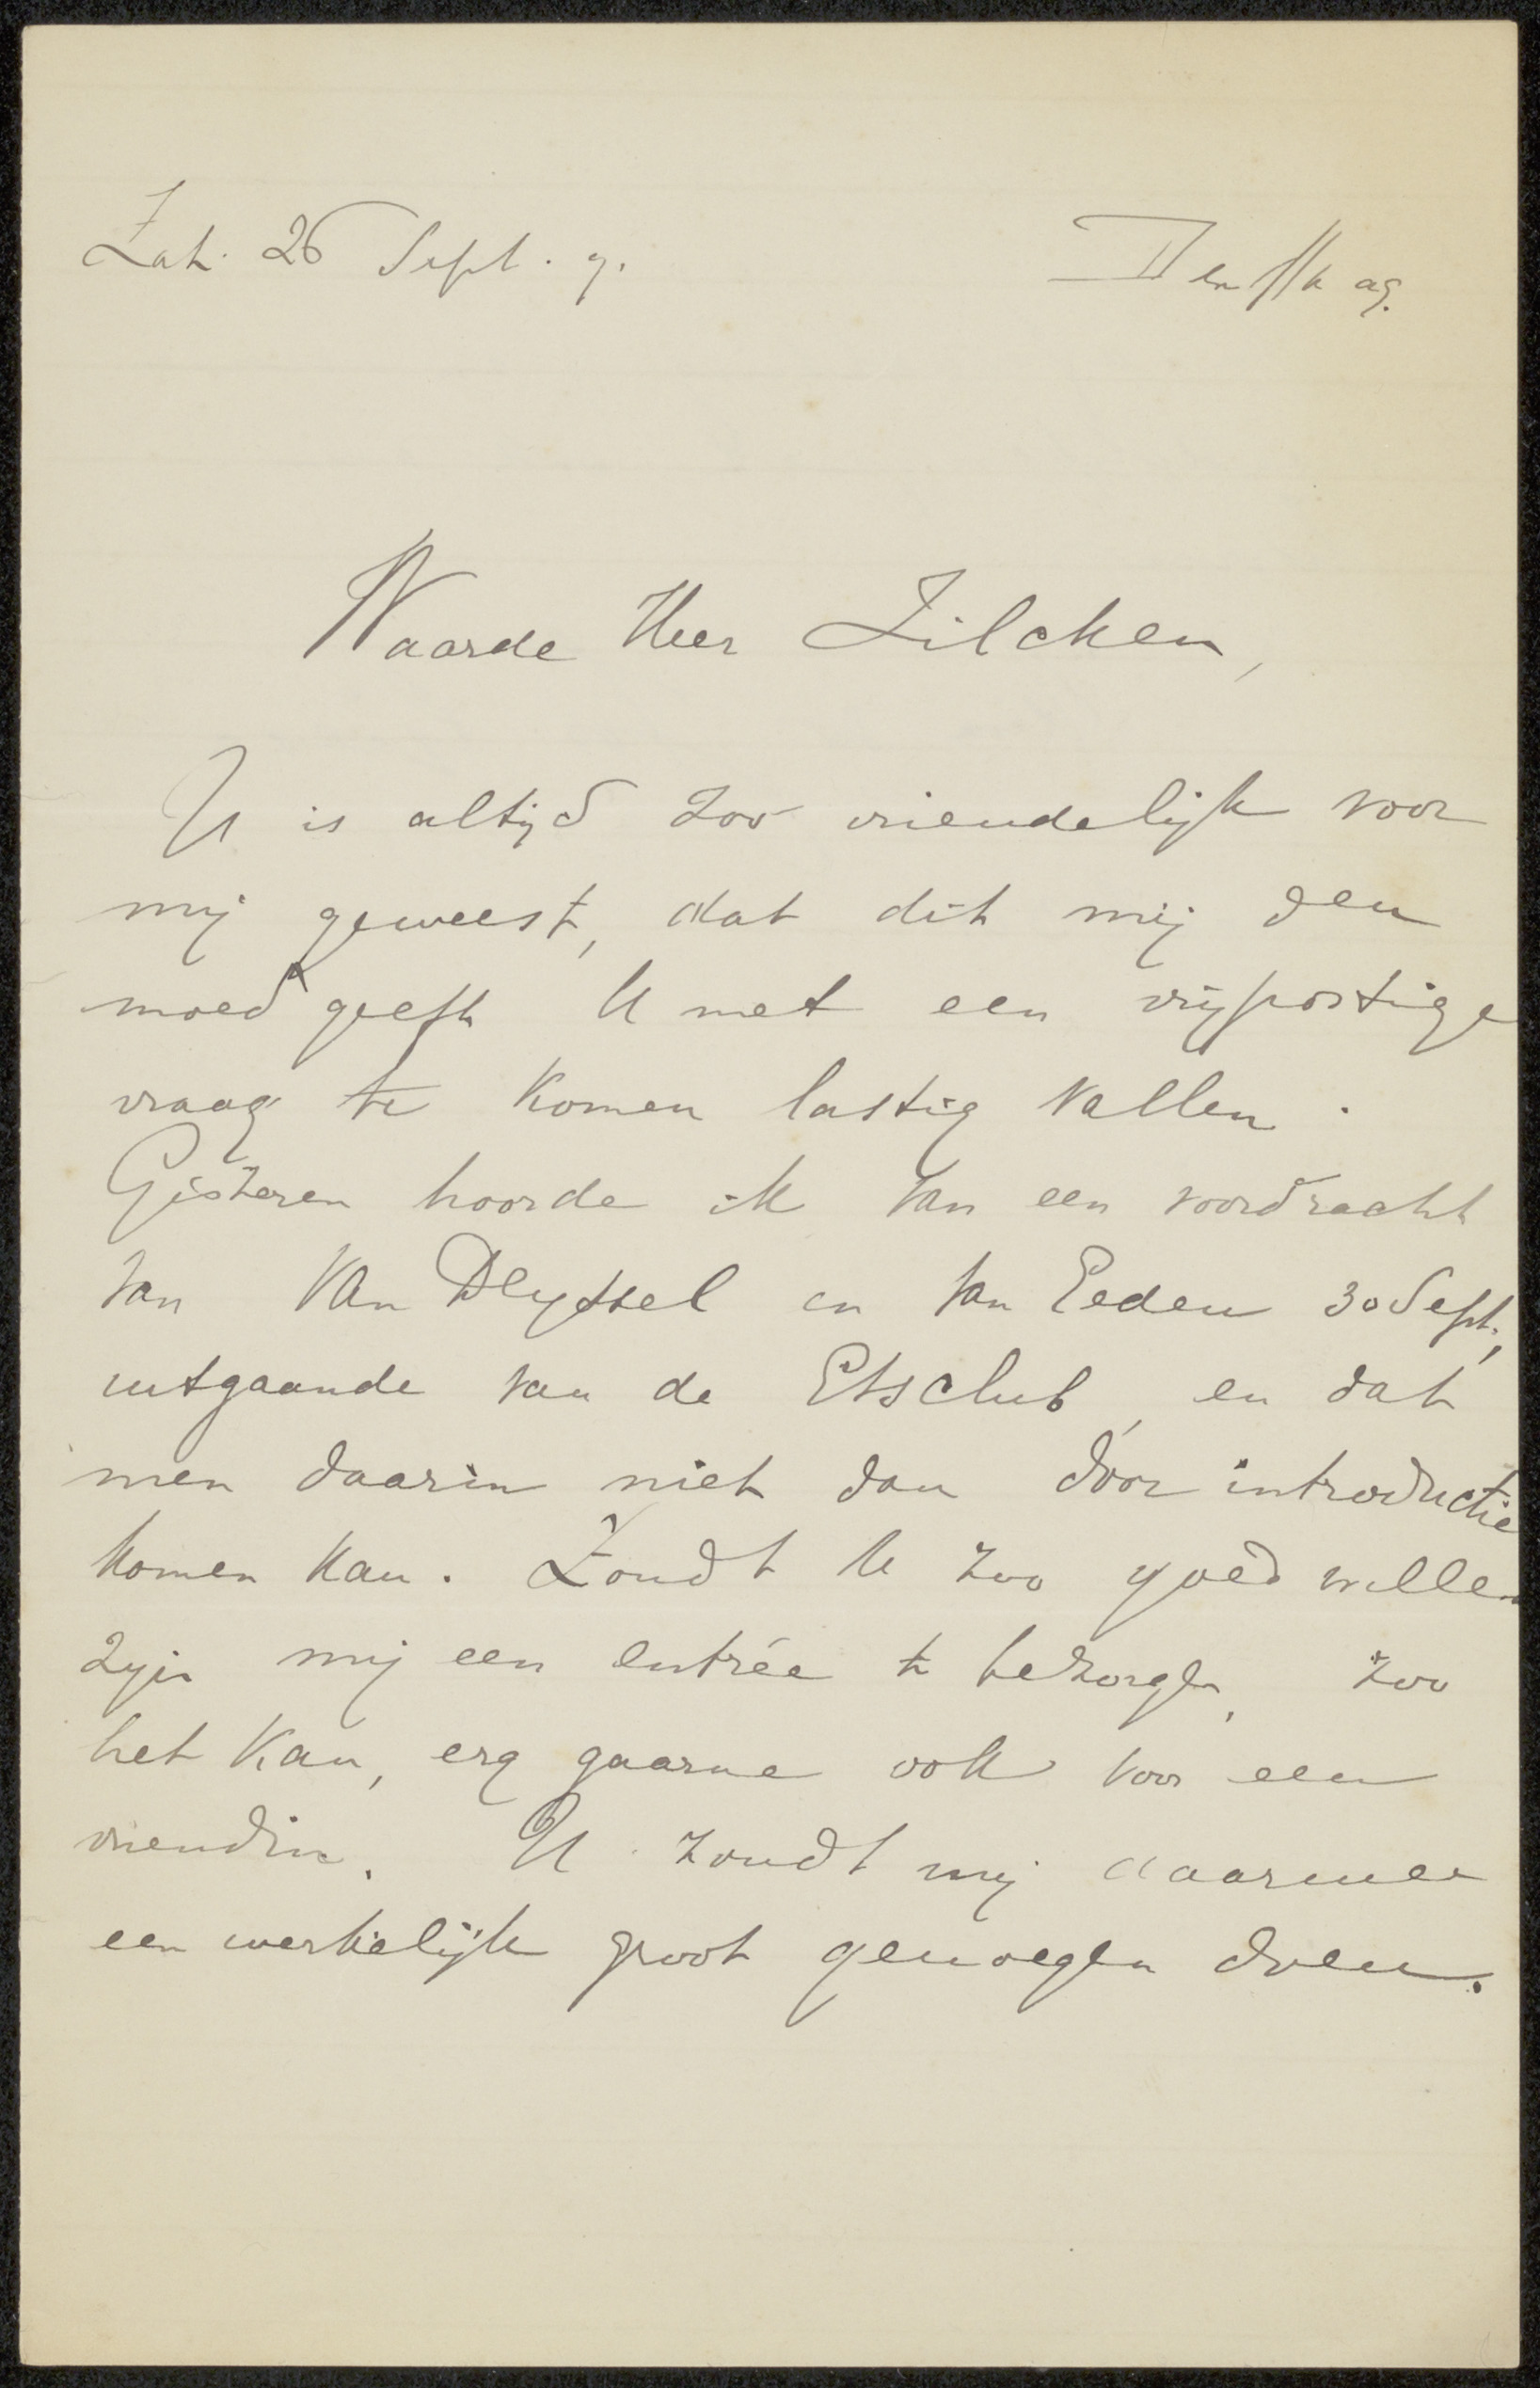 Zat. 26 Sept. 9.
Den Haag.
Waarde Heer Zilcken,
U is altijd zoo vriendelijk voor
mij geweest, dat dit mij den
moed geeft U met een vrijpostige
vraag te komen lastig vallen.
Gisteren hoorde ik van een voordracht
van Van Deyssel en Van Eeden 30 Sept.,
uitgaande van de Etsclub, en dat
men daarin niet dan dóor introductie
komen kan. Zoudt U zoo goed willen
zijn mij een entrée te bezorgen, zoo
het kan, erg gaarne ook voor een
vriendin. U zoudt mij daarmee
een werkelijk groot genoegen doen.